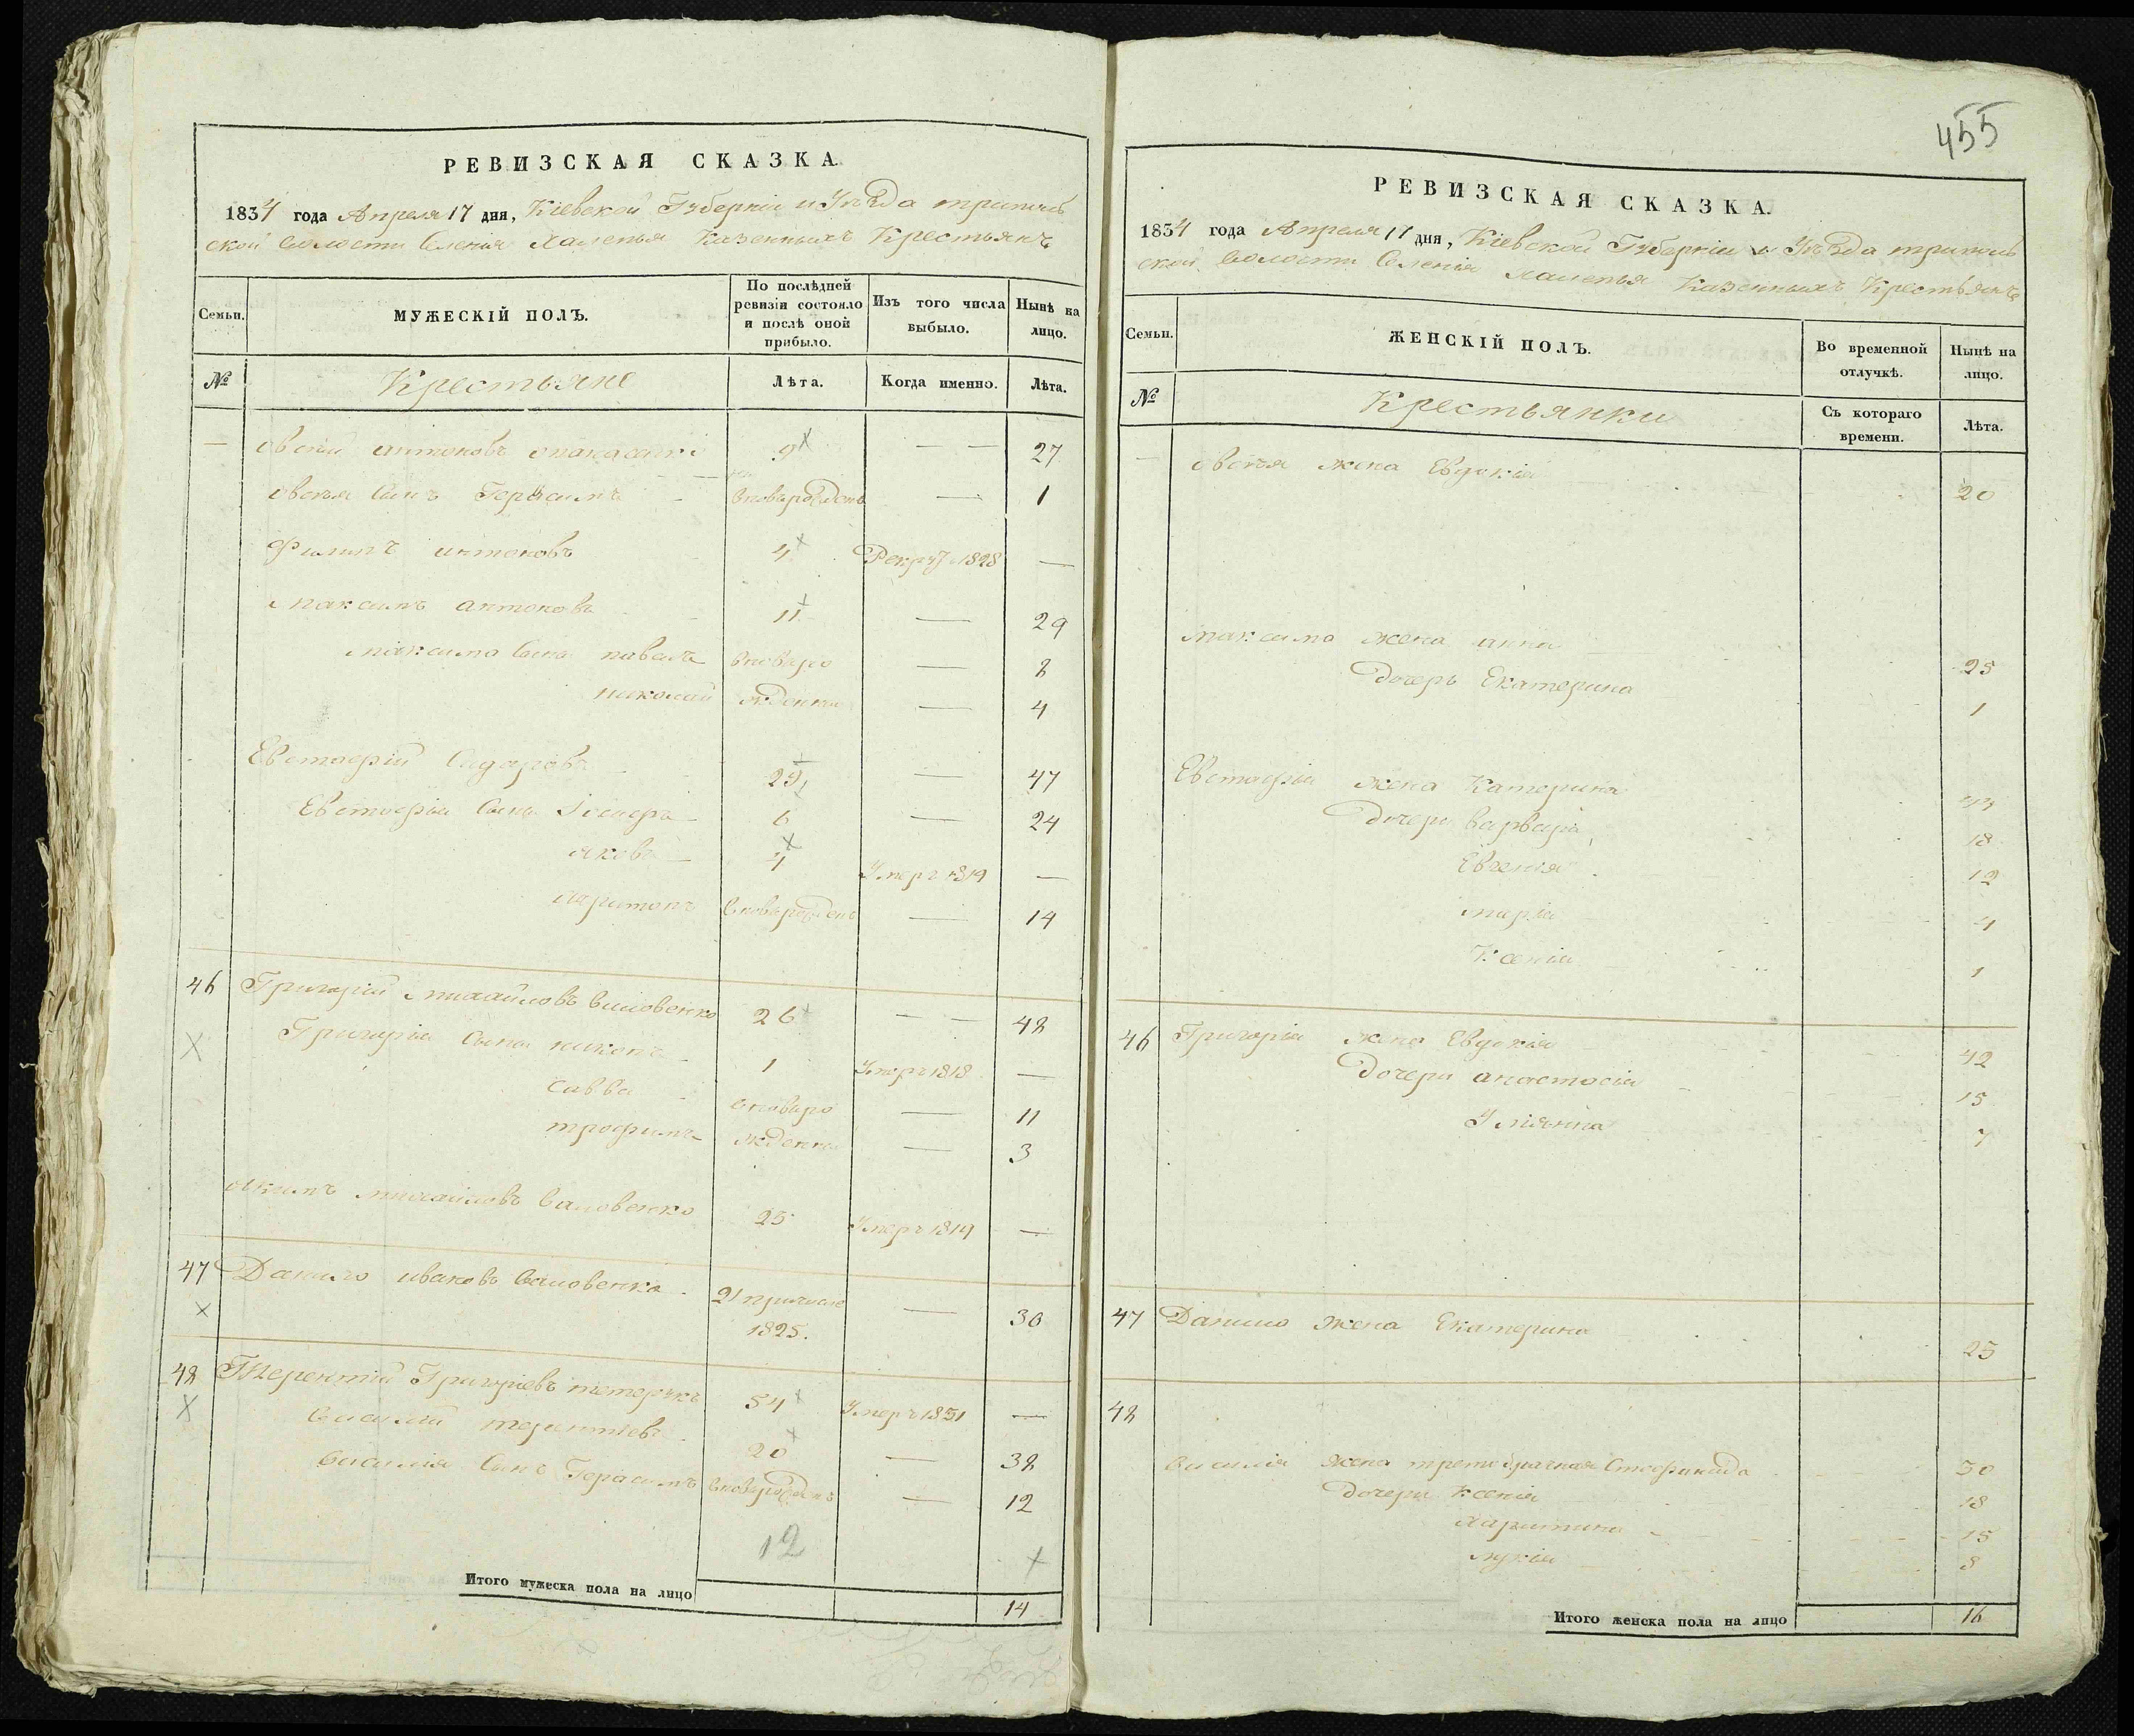 455
РЕВИЗСКАЯ СКАЗКА.
1834 года Апреля 17 дня, Кіевской Губерніи и Уѣзда триполь
ской волости Селенія Халепья Казенныхъ Крестьянъ
Семьи.
МУЖЕСКІЙ ПОЛЪ.
По послѣдней ревизіи состояло и послѣ оной прибыло.
Изъ того числа выбыло.
Нынѣ на лицо.
№ Крестьяне Лѣта. Когда именно. Лѣта.
— антоновъ 9 — — 27
сынъ Герасимъ вноворожденъ — 1
Филипъ антоновъ 4 Рекру 1828 —
Максимъ антоновъ 11 — 29
Максима сыны павелъ вноворо — 8
николай жденны — 4
Евстафій 29 — 47
Евстафія сыны Іосифъ 6 — 24
яковъ 4 Умеръ 1819 —
харитонъ вноворожденъ — 14
46 Григорій михайловъ 26 — — 42
Григорія сыны никонъ 1 Умеръ 1818 —
Савва вноворо — 11
трофимъ жденны — 3
якимъ михайловъ 25 Умеръ 1819 —
47 Данило ивановъ 21 1825. — 30
48 Терентій Григоріевъ 54 Умеръ 1831 —
василій терентіевъ 20 — 38
василія сынъ Герасимъ вноворожденъ — 12
12
Итого мужеска пола на лицо 14
РЕВИЗСКАЯ СКАЗКА.
1834 года Апреля 17 дня, Кіевской Губерніи и Уѣзда триполь
ской волости Селенія Халепья Казенныхъ Крестьянъ
Семьи.
ЖЕНСКІЙ ПОЛЪ.
Во временной отлучкѣ.
Нынѣ на лицо.
№ Крестьянки Съ котораго времени. Лѣта.
— жена Евдокія 20
Максима жена анна 25
дочерь Екатерина 1
Евстафія жена Катерина
дочери варвара 18
Евгенія 12
марія 4
Ксенія 1
46 Григорія жена Евдокія 42
дочери анастасія 15
Уліянна 7
47 Данило жена Екатерина 25
48
василія жена третобрачная Стефанида 30
дочери ксенія 18
харитина 15
лукія 8
Итого женска пола на лицо 16